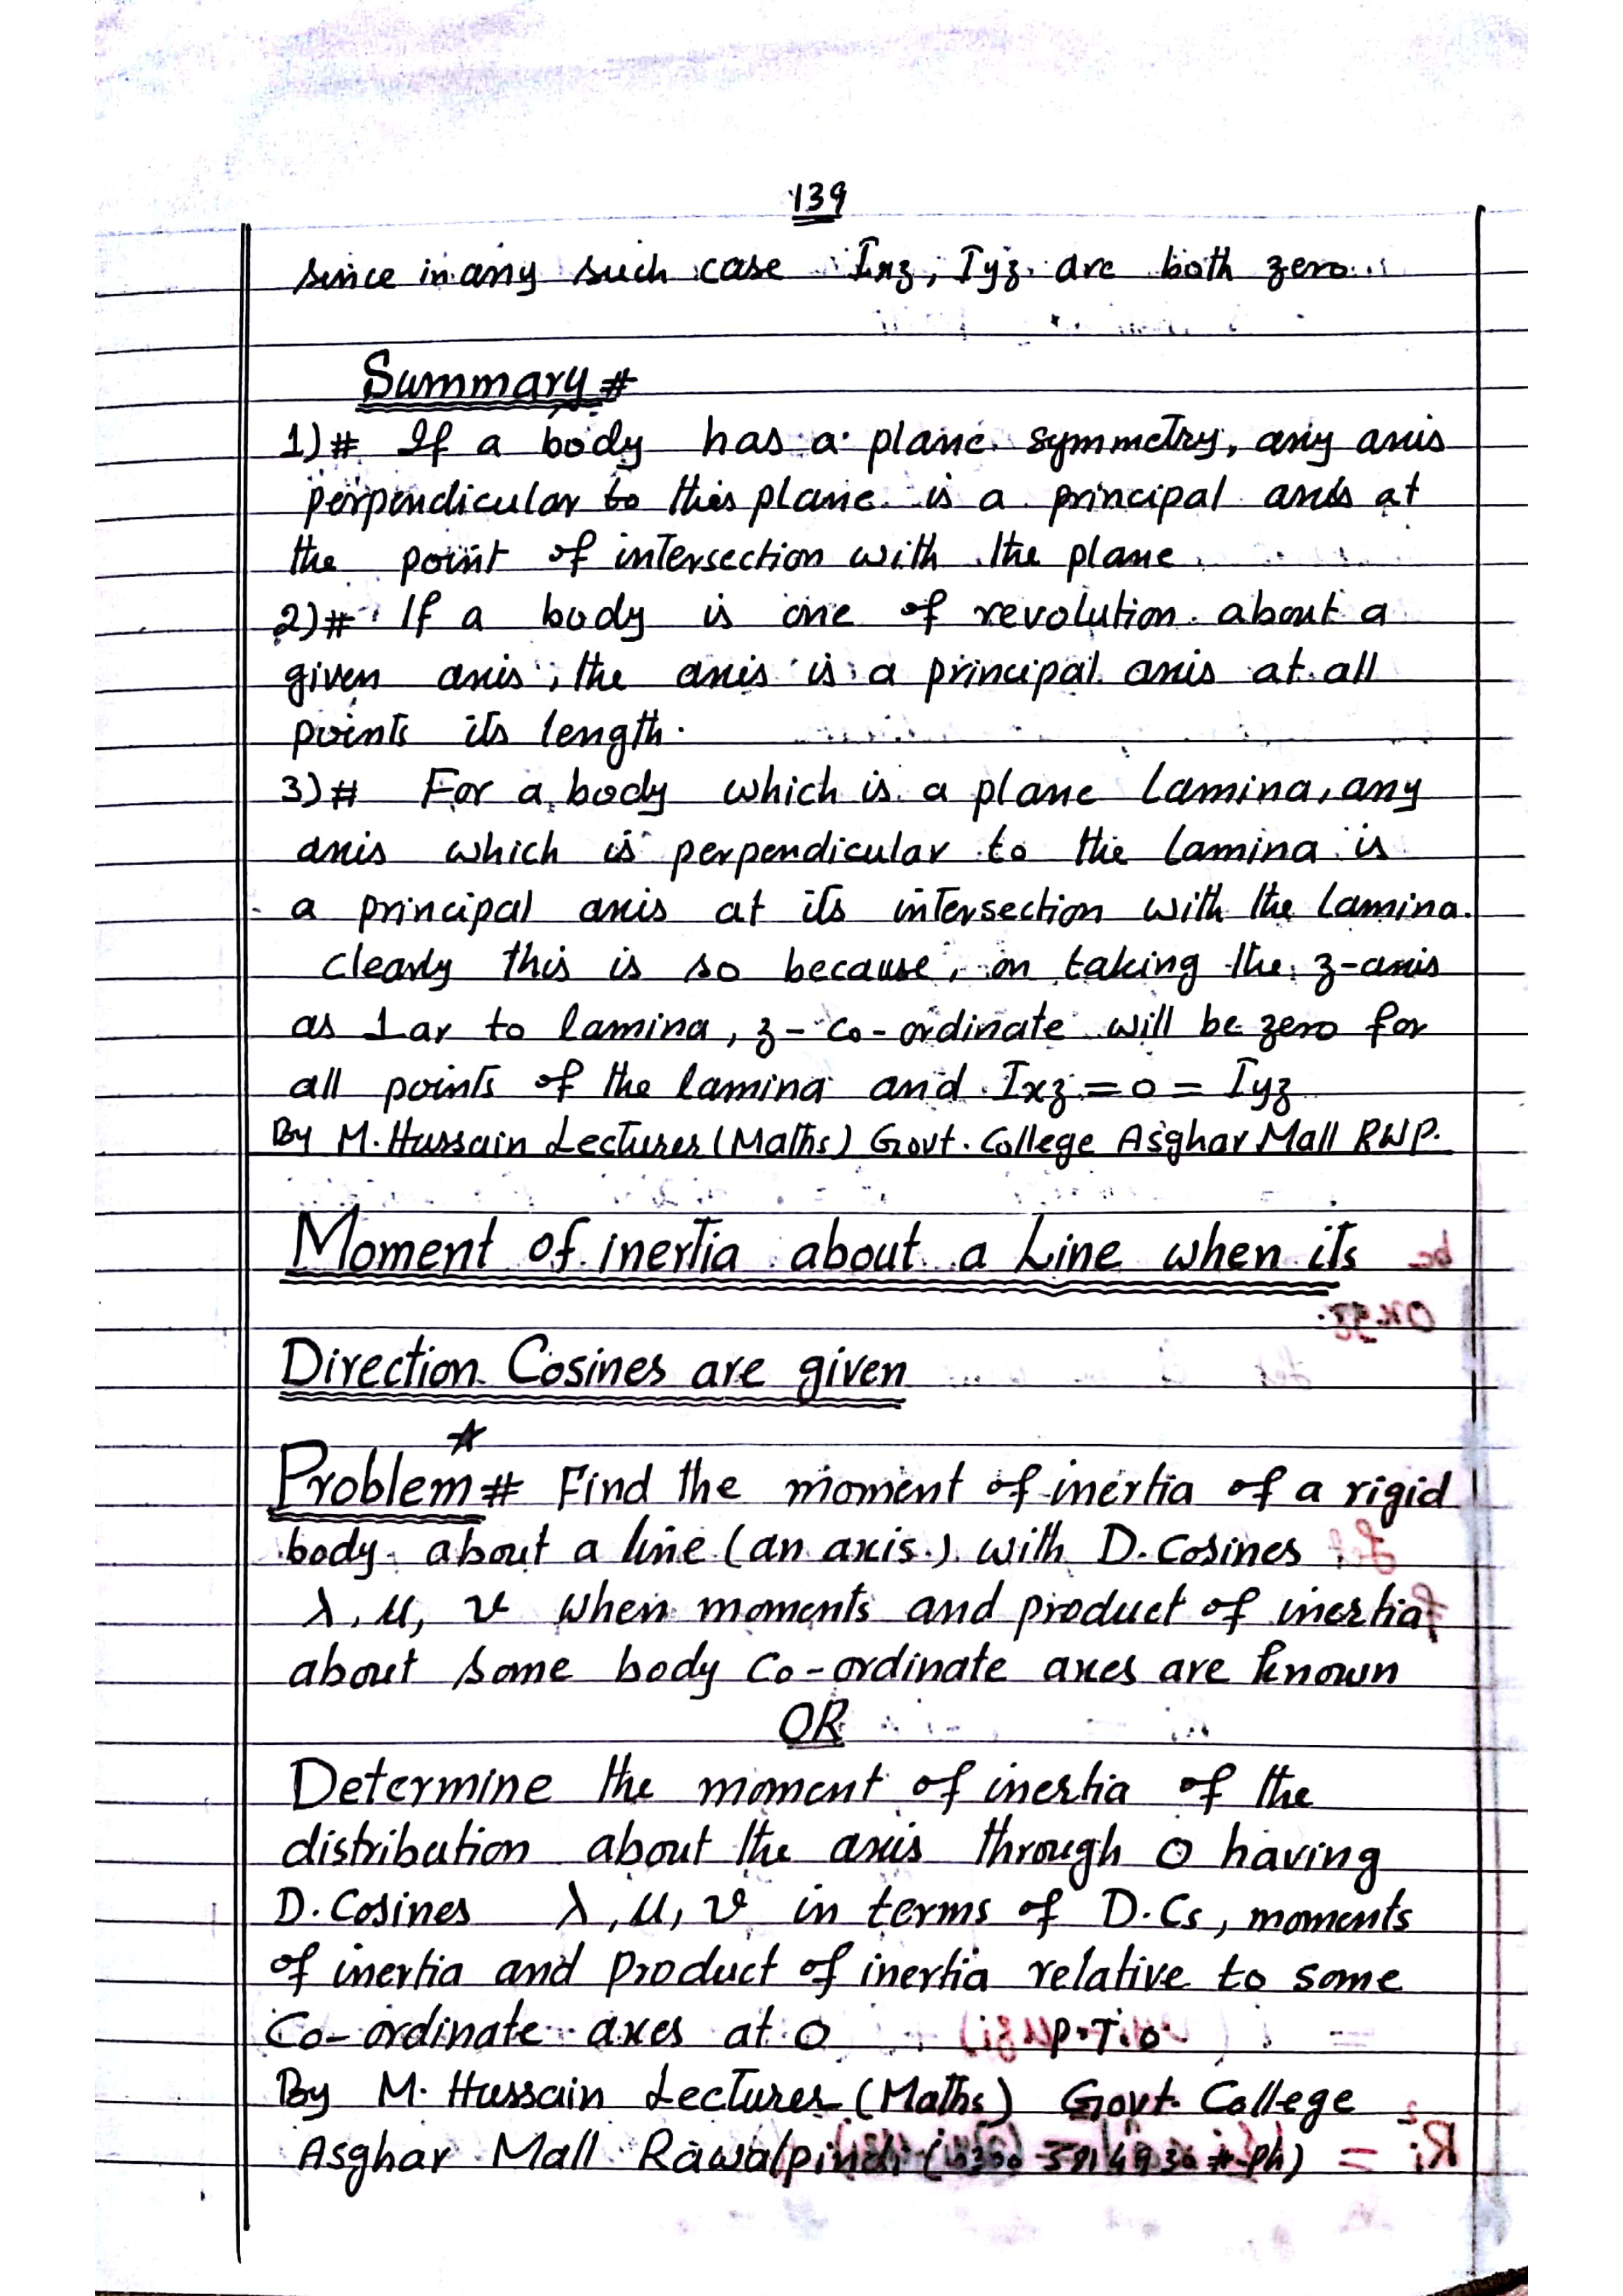 139
since in any such case Ixz, Iyz are both zero.
Summary #
1)# If a body has a plane symmetry, any axis
perpendicular to this plane is a principal axis at
the point of intersection with the plane
2)# If a body is one of revolution about a
given axis, the axis is a principal axis at all
points its length.
3)# For a body which is a plane lamina, any
axis which is perpendicular to the lamina is
a principal axis at its intersection with the lamina.
clearly this is so because, on taking the z-axis
as ⊥ar to lamina, z-co-ordinate will be zero for
all points of the lamina and Ixz = 0 = Iyz
By M. Hussain Lectures (Maths) Govt. College Asghar Mall RWP.
Moment of inertia about a Line when its
Direction Cosines are given
Problem # Find the moment of inertia of a rigid
body about a line (an axis.) with D. Cosines
λ, μ, ν when moments and product of inertia
about some body Co-ordinate axes are known
OR
Determine the moment of inertia of the
distribution about the axis through O having
D. Cosines λ, μ, ν in terms of D.Cs, moments
of inertia and product of inertia relative to some
Co-ordinate axes at O P.T.O
By M. Hussain Lectures (Maths) Govt. College
Asghar Mall Rawalpindi